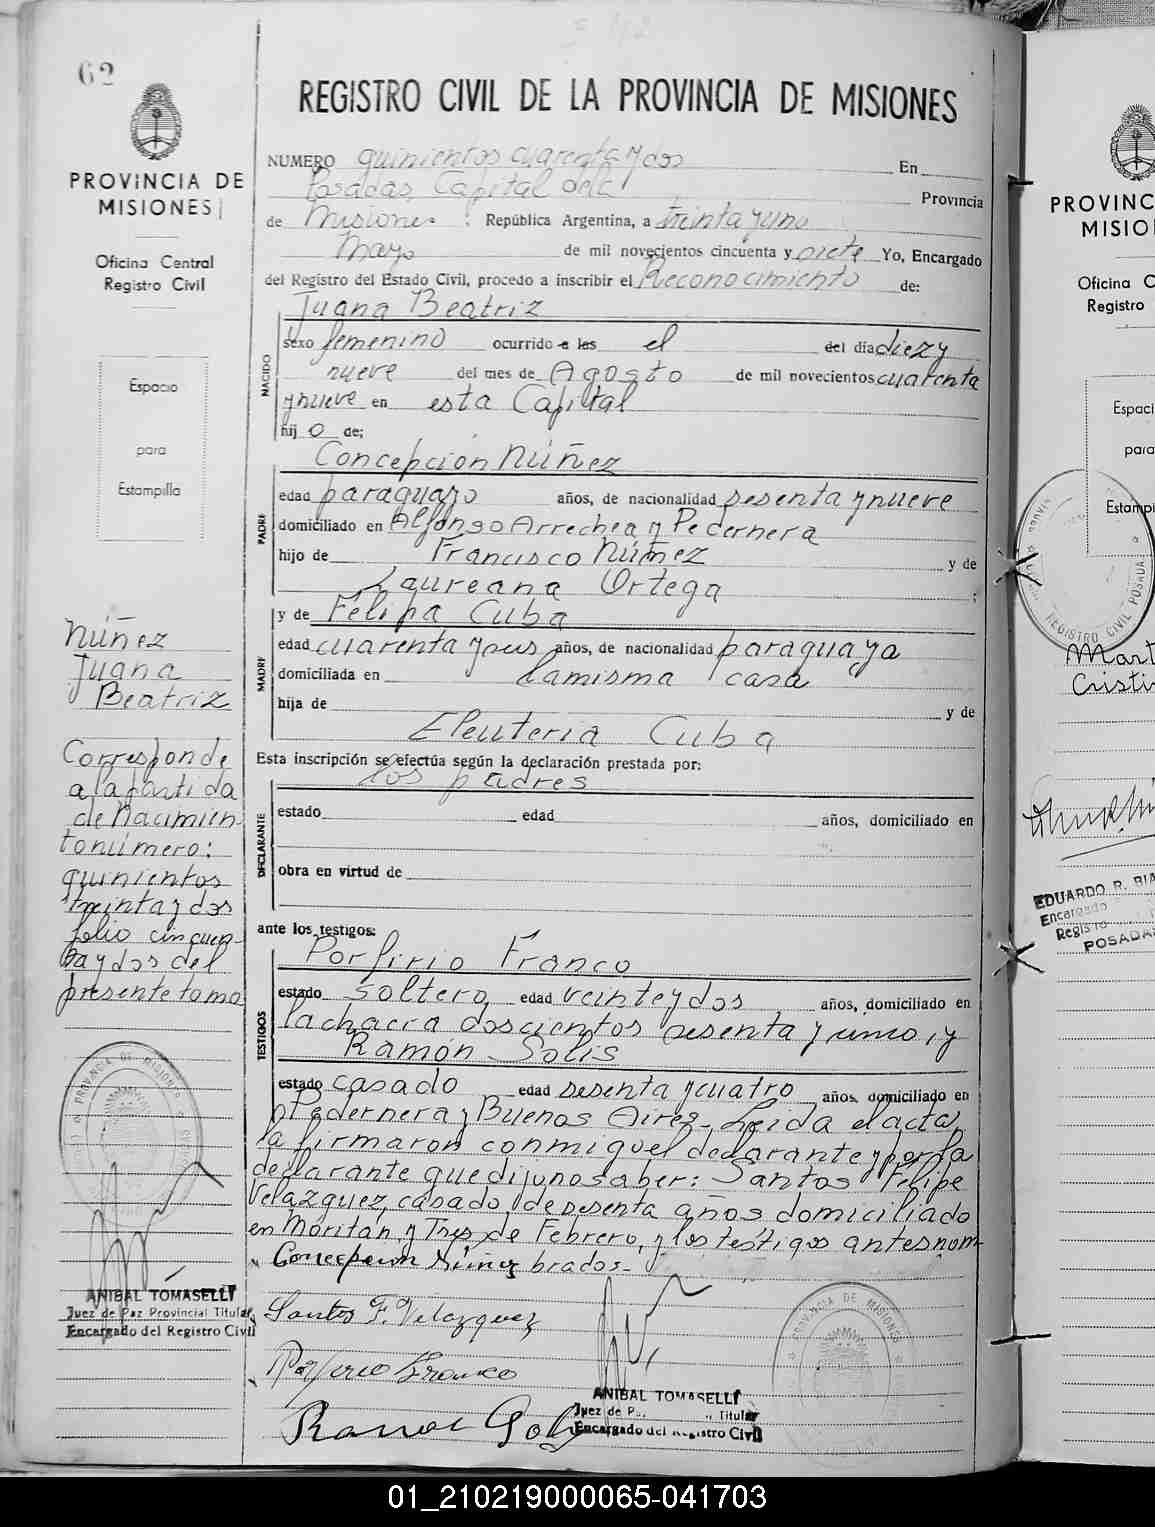 62
PROVINCIA DE
MISIONES
Oficina Central
Registro Civil
Espacio
para
Estampilla
Núñez
Juana
Beatriz
Corresponde
a la partida
de Nacimien
to número:
quinientos
treinta y dos
folio cincuen-
ta y dos del
presente tomo
ANIBAL TOMASELLI
Juez de Paz Provincial Titular
Encargado del Registro Civil
REGISTRO CIVIL DE LA PROVINCIA DE MISIONES
NUMERO quinientos cuarenta y dos En
Posadas, Capital de la Provincia
de Misiones República Argentina, a treinta y uno
Mayo de mil novecientos cincuenta y siete Yo, Encargado
del Registro del Estado Civil, procedo a inscribir el Reconocimiento de:
Juana Beatriz
NACIDO
sexo femenino ocurrido a las el del día diez y
nueve del mes de Agosto de mil novecientos cuarenta
y nueve en esta Capital
hij o de;
Concepción Núñez
PADRE
edad paraguayo años, de nacionalidad sesenta y nueve
domiciliado en Alfonso Arrechea y Pedernera
hijo de Francisco Núñez y de
Laureana Ortega ;
y de Felipa Cuba
MADRE
edad cuarenta y seis años, de nacionalidad paraguaya
domiciliada en la misma casa
hija de y de
Eleuteria Cuba
Esta inscripción se efectúa según la declaración prestada por:
los padres
DECLARANTE
estado edad años, domiciliado en
obra en virtud de
ante los testigos:
Porfirio Franco
TESTIGOS
estado soltero edad veinte y dos años, domiciliado en
la chacra doscientos sesenta y uno, y
Ramón Solis
estado casado edad sesenta y cuatro años, domiciliado en
Pedernera y Buenos Aires- Leida el acta,
la firmaron conmigo el declarante y por la
declarante que dijo no saber: Santos Felipe
Velázquez, casado, de sesenta años domiciliado
en Moritán y Tres de Febrero, y los testigos antes nom
Concepcion Núñez brados-
Santos F. Velazquez
Porfirio Franco
Ramon Solis
ANIBAL TOMASELLI
Juez de P Titular
Encargado del Registro Civil
PROVINC
MISION
Oficina C
Registro
Espaci
para
Estampi
REGISTRO CIVIL POSADA
Mart
Cristi
EDUARDO R. BIA
Encargado
Registro
POSADA
01_210219000065-041703